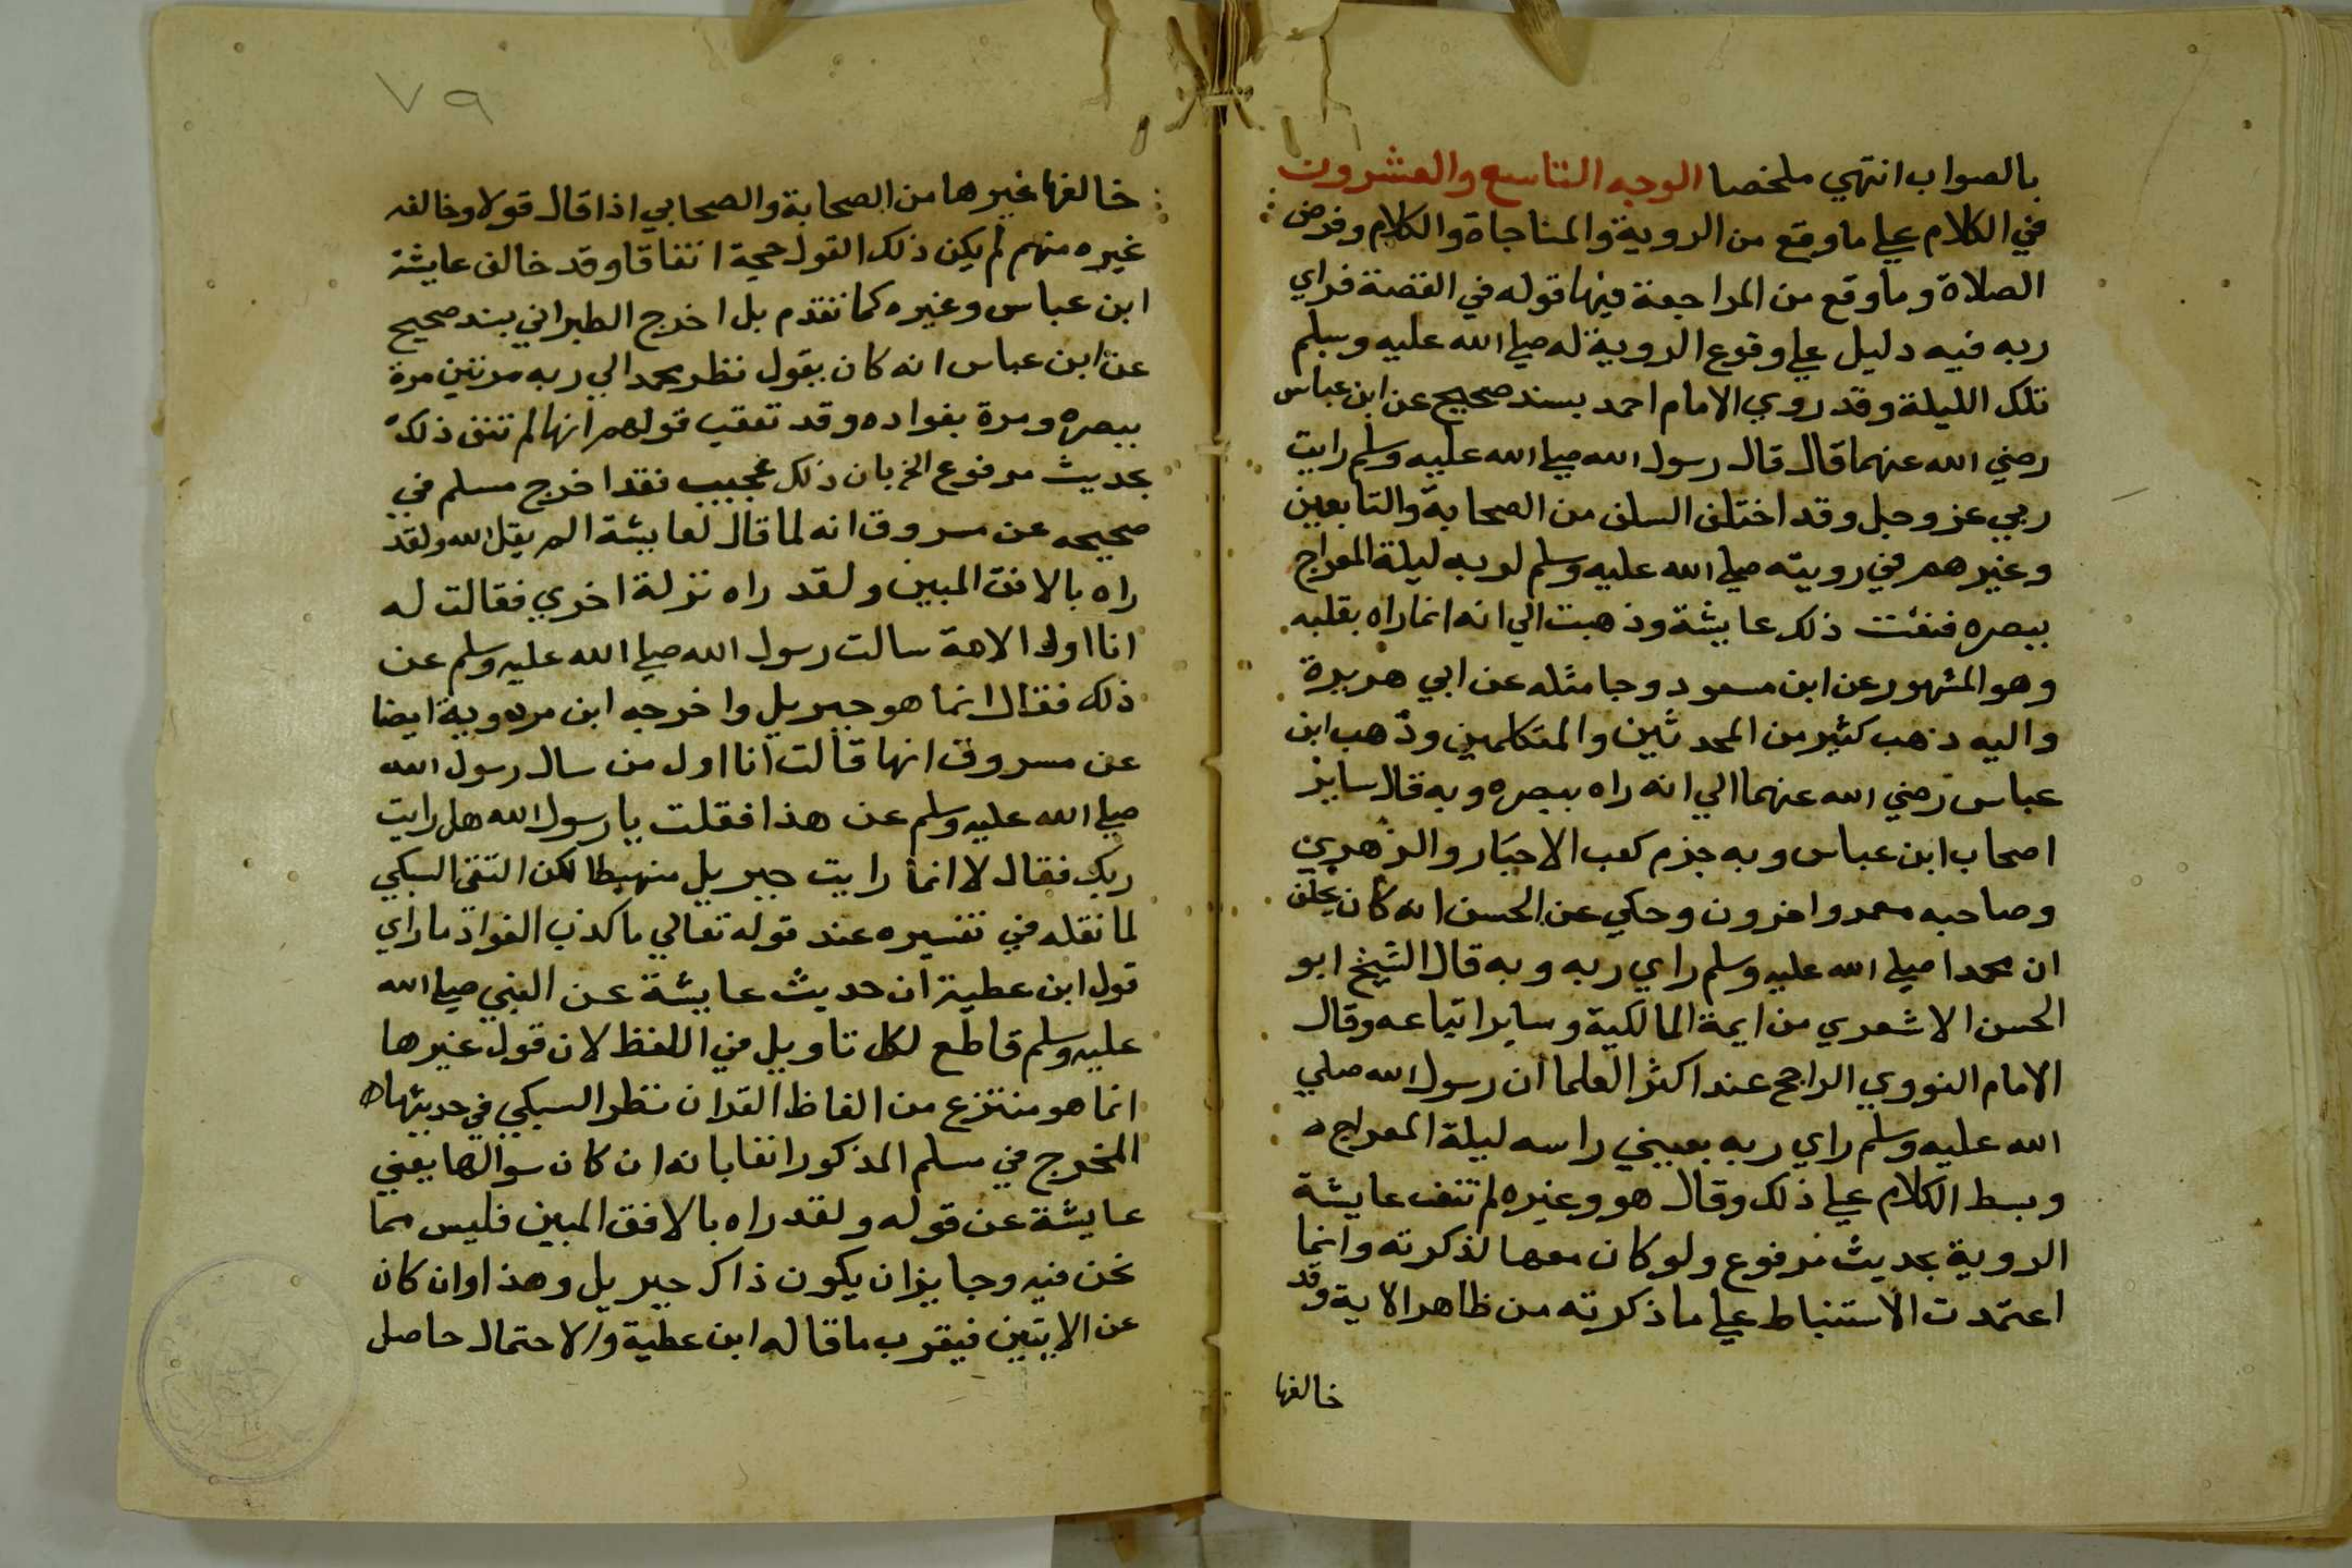 بالصواب انتهي ملخصا الوجه التاسع والعشرون
في الكلام علي ما وقع من الروية والمناجاة والكلام وفرض
الصلاة وما وقع من المراجعة فيها قوله في القصة فراي
ربه فيه دليل علي وقوع الروية له صلي الله عليه وسلم
تلك الليلة وقد روي الامام احمد بسند صحيح عن ابن عباس
رضي الله عنهما قال قال رسول الله صلي الله عليه وسلم رايت
ربي عز وجل وقد اختلف السلف من الصحابة والتابعين
وغيرهم في رويته صلي الله عليه وسلم لربه ليلة المعراج
ببصره فنفت ذلك عايشة وذهبت الي انه انما راه بقلبه
وهو المشهور عن ابن مسعود وجا مثله عن ابي هريرة
واليه ذهب كثير من المحدثين والمتكلمين وذهب ابن
عباس رضي الله عنهما الي انه راه ببصره وبه قال ساير
اصحاب ابن عباس وبه جزم كعب الاحبار والزهري
وصاحبه معمر واخرون وحكي عن الحسن انه كان يحلف
ان محمدا صلي الله عليه وسلم راي ربه وبه قال الشيخ ابو
الحسن الاشعري من ايمة المالكية وساير اتباعه وقال
الامام النووي الراجح عند اكثر العلما ان رسول الله صلي
الله عليه وسلم راي ربه بعيني راسه ليلة المعراج ه
وبسط الكلام علي ذلك وقال هو وغيره لم تنف عايشة
الروية بحديث مرفوع ولو كان معها لذكرته وانما
اعتمدت الاستنباط علي ما ذكرته من ظاهر الاية وقد
خالفها
٧٩
خالفها غيرها من الصحابة والصحابي اذا قال قولا وخالفه
غيره منهم لم يكن ذلك القول حجة اتفاقا وقد خالف عايشة
ابن عباس وغيره كما تقدم بل اخرج الطبراني بسند صحيح
عن ابن عباس انه كان يقول نظر محمد الي ربه مرتين مرة
ببصره ومرة بفواده وقد تعقب قولهم انها لم تنف ذلك
بحديث مرفوع الخ بان ذلك عجيب فقد اخرج مسلم في
صحيحه عن مسروق انه لما قال لعايشة الم يقل الله ولقد
راه بالافق المبين ولقد راه نزلة اخري فقالت له
انا اول الامة سالت رسول الله صلي الله عليه وسلم عن
ذلك فقال انما هو جبريل واخرجه ابن مردوية ايضا
عن مسروق انها قالت انا اول من سال رسول الله
صلي الله عليه وسلم عن هذا فقلت يا رسول الله هل رايت
ربك فقال لا انما رايت جبريل منهبطا لكن التقي السبكي
لما نقله في تفسيره عند قوله تعالي ما كذب الفواد ما راي
قول ابن عطية ان حديث عايشة عن النبي صلي الله
عليه وسلم قاطع لكل تاويل في اللفظ لان قول غيرها
انما هو منتزع من الفاظ القران نظر السبكي في حديثها ه
المخرج في مسلم المذكور انفا بانه ان كان سوالها يعني
عايشة عن قوله ولقد راه بالافق المبين فليس مما
نحن فيه وجايز ان يكون ذاك جبريل وهذا وان كان
عن الايتين فيقرب ما قاله ابن عطية والاحتمال حاصل